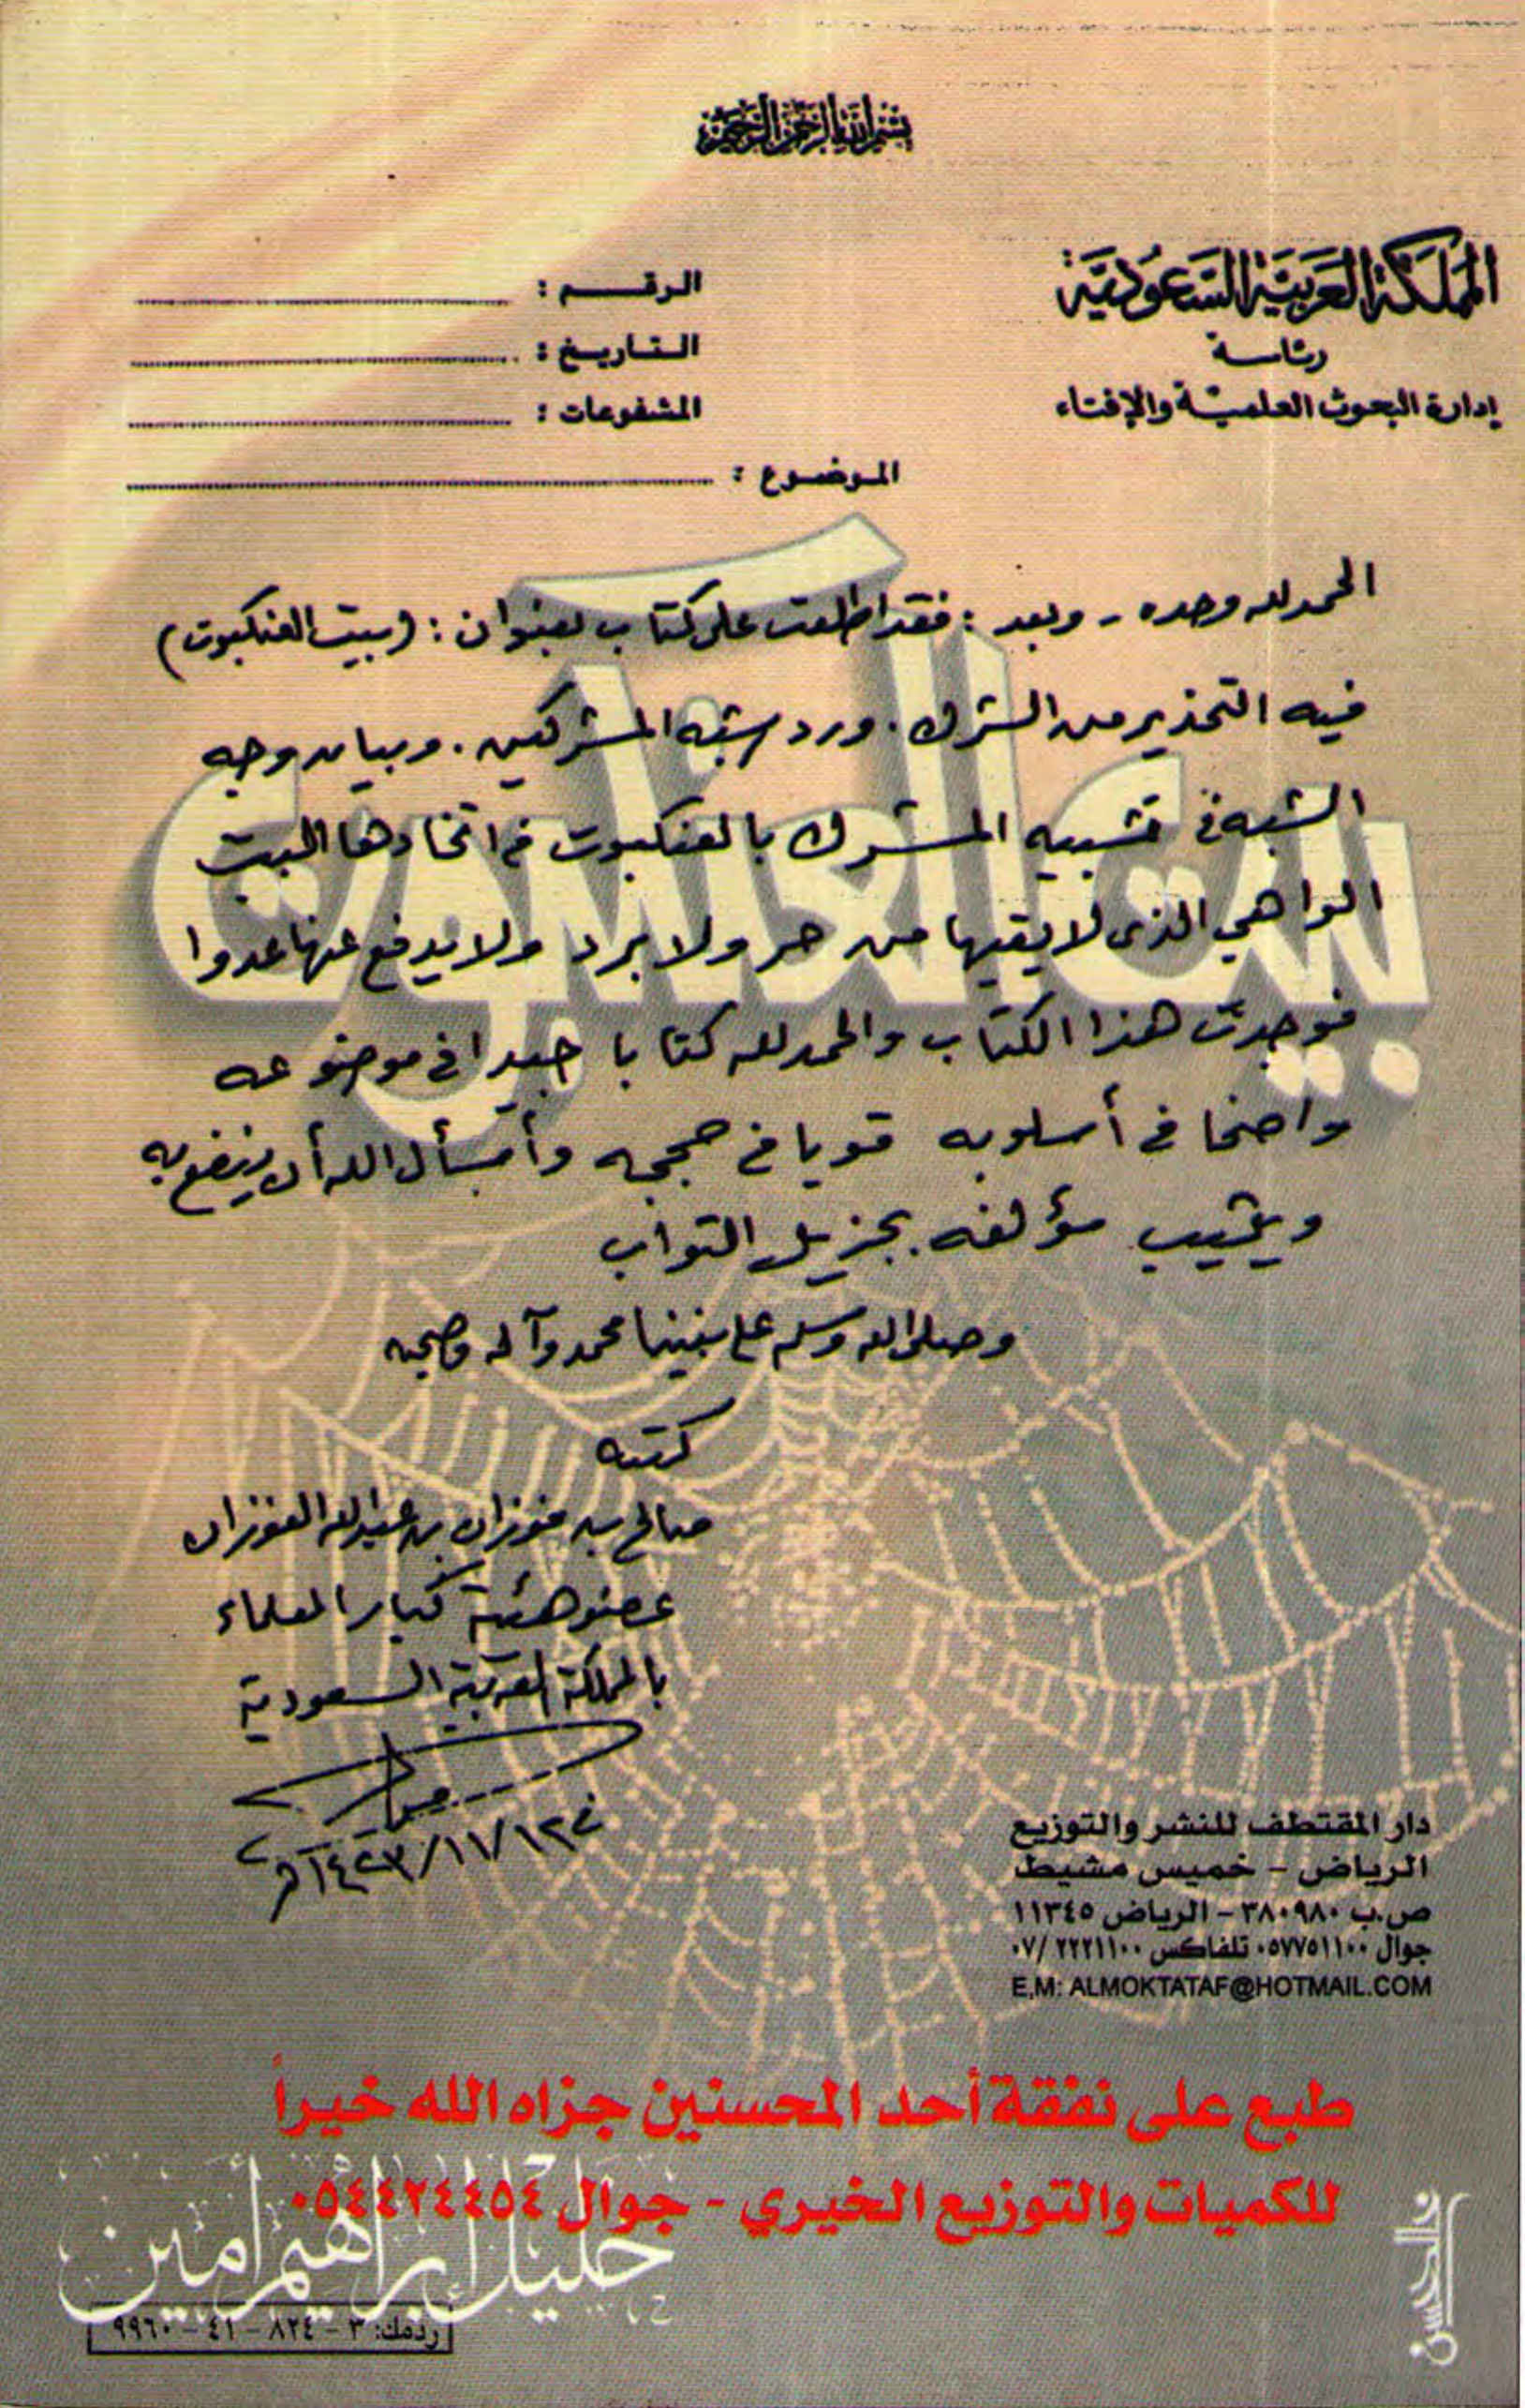 بسم الله الرحمن الرحيم
المملكة العربية السعودية
رئاسة
إدارة البحوث العلمية والإفتاء
الرقم :
التاريخ :
المشفوعات :
الموضوع :
بيت العنكبوت
الحمد لله وحده - وبعد : فقد اطلعت على كتاب بعنوان : (بيت العنكبوت)
فيه التحذير من الشرك . ورد شبه المشركين . وبيان وجه
الشبه في تشبيه المشرك بالعنكبوت في اتخاذها البيت
الواهي الذي لا يقيها من حر ولا برد ولا يدفع عنها عدوا
فوجدت هذا الكتاب والحمد لله كتابا جيدا في موضوعه
واضحا في أسلوبه قويا في حججه وأسأل الله أن ينفع به
ويثيب مؤلفه بجزيل الثواب
وصلى الله وسلم على نبينا محمد وآله وصحبه
كتبه
صالح بن فوزان بن عبدالله الفوزان
عضو هيئة كبار العلماء
بالمملكة العربية السعودية
دار المقتطف للنشر والتوزيع
الرياض - خميس مشيط
ص.ب ٣٨٠٩٨٠ - الرياض ١١٣٤٥
جوال ٠٥٧٧٥١١٠٠ تلفاكس ٢٢٢١١٠٠ /٠٧
E,M: ALMOKTATAF@HOTMAIL.COM
طبع على نفقة أحد المحسنين جزاه الله خيراً
للكميات والتوزيع الخيري - جوال ٠٥٤٤٢٤٤٥٤
خليل إبراهيم أمين
ردمك: ٣ - ٨٢٤ - ٤١ - ٩٩٦٠